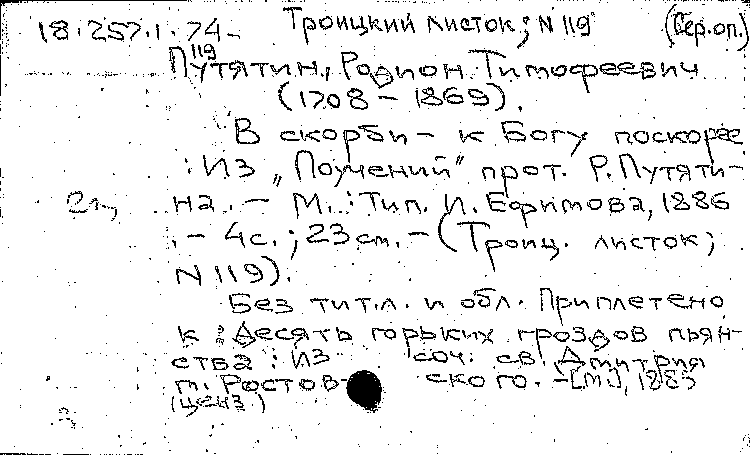 18.257.1.74- Троицкий листок; N 119 (Сер.оп.)
119
Путятин, Родион Тимофеевич
(1708-1869).
В скорби - к Богу поскорее
: Из „Поучений" прот. Р. Путяти-
на. - М.: Тип. И. Ефимова, 1886
. - 4с.; 23см. - (Троиц. листок;
N 119).
Без тит.л. и обл. Приплетено
к: Десять горьких гроздов пьян-
ства: Из соч. св. Дмитрия
Ростов- ского. - [М.], 1883
(ценз)